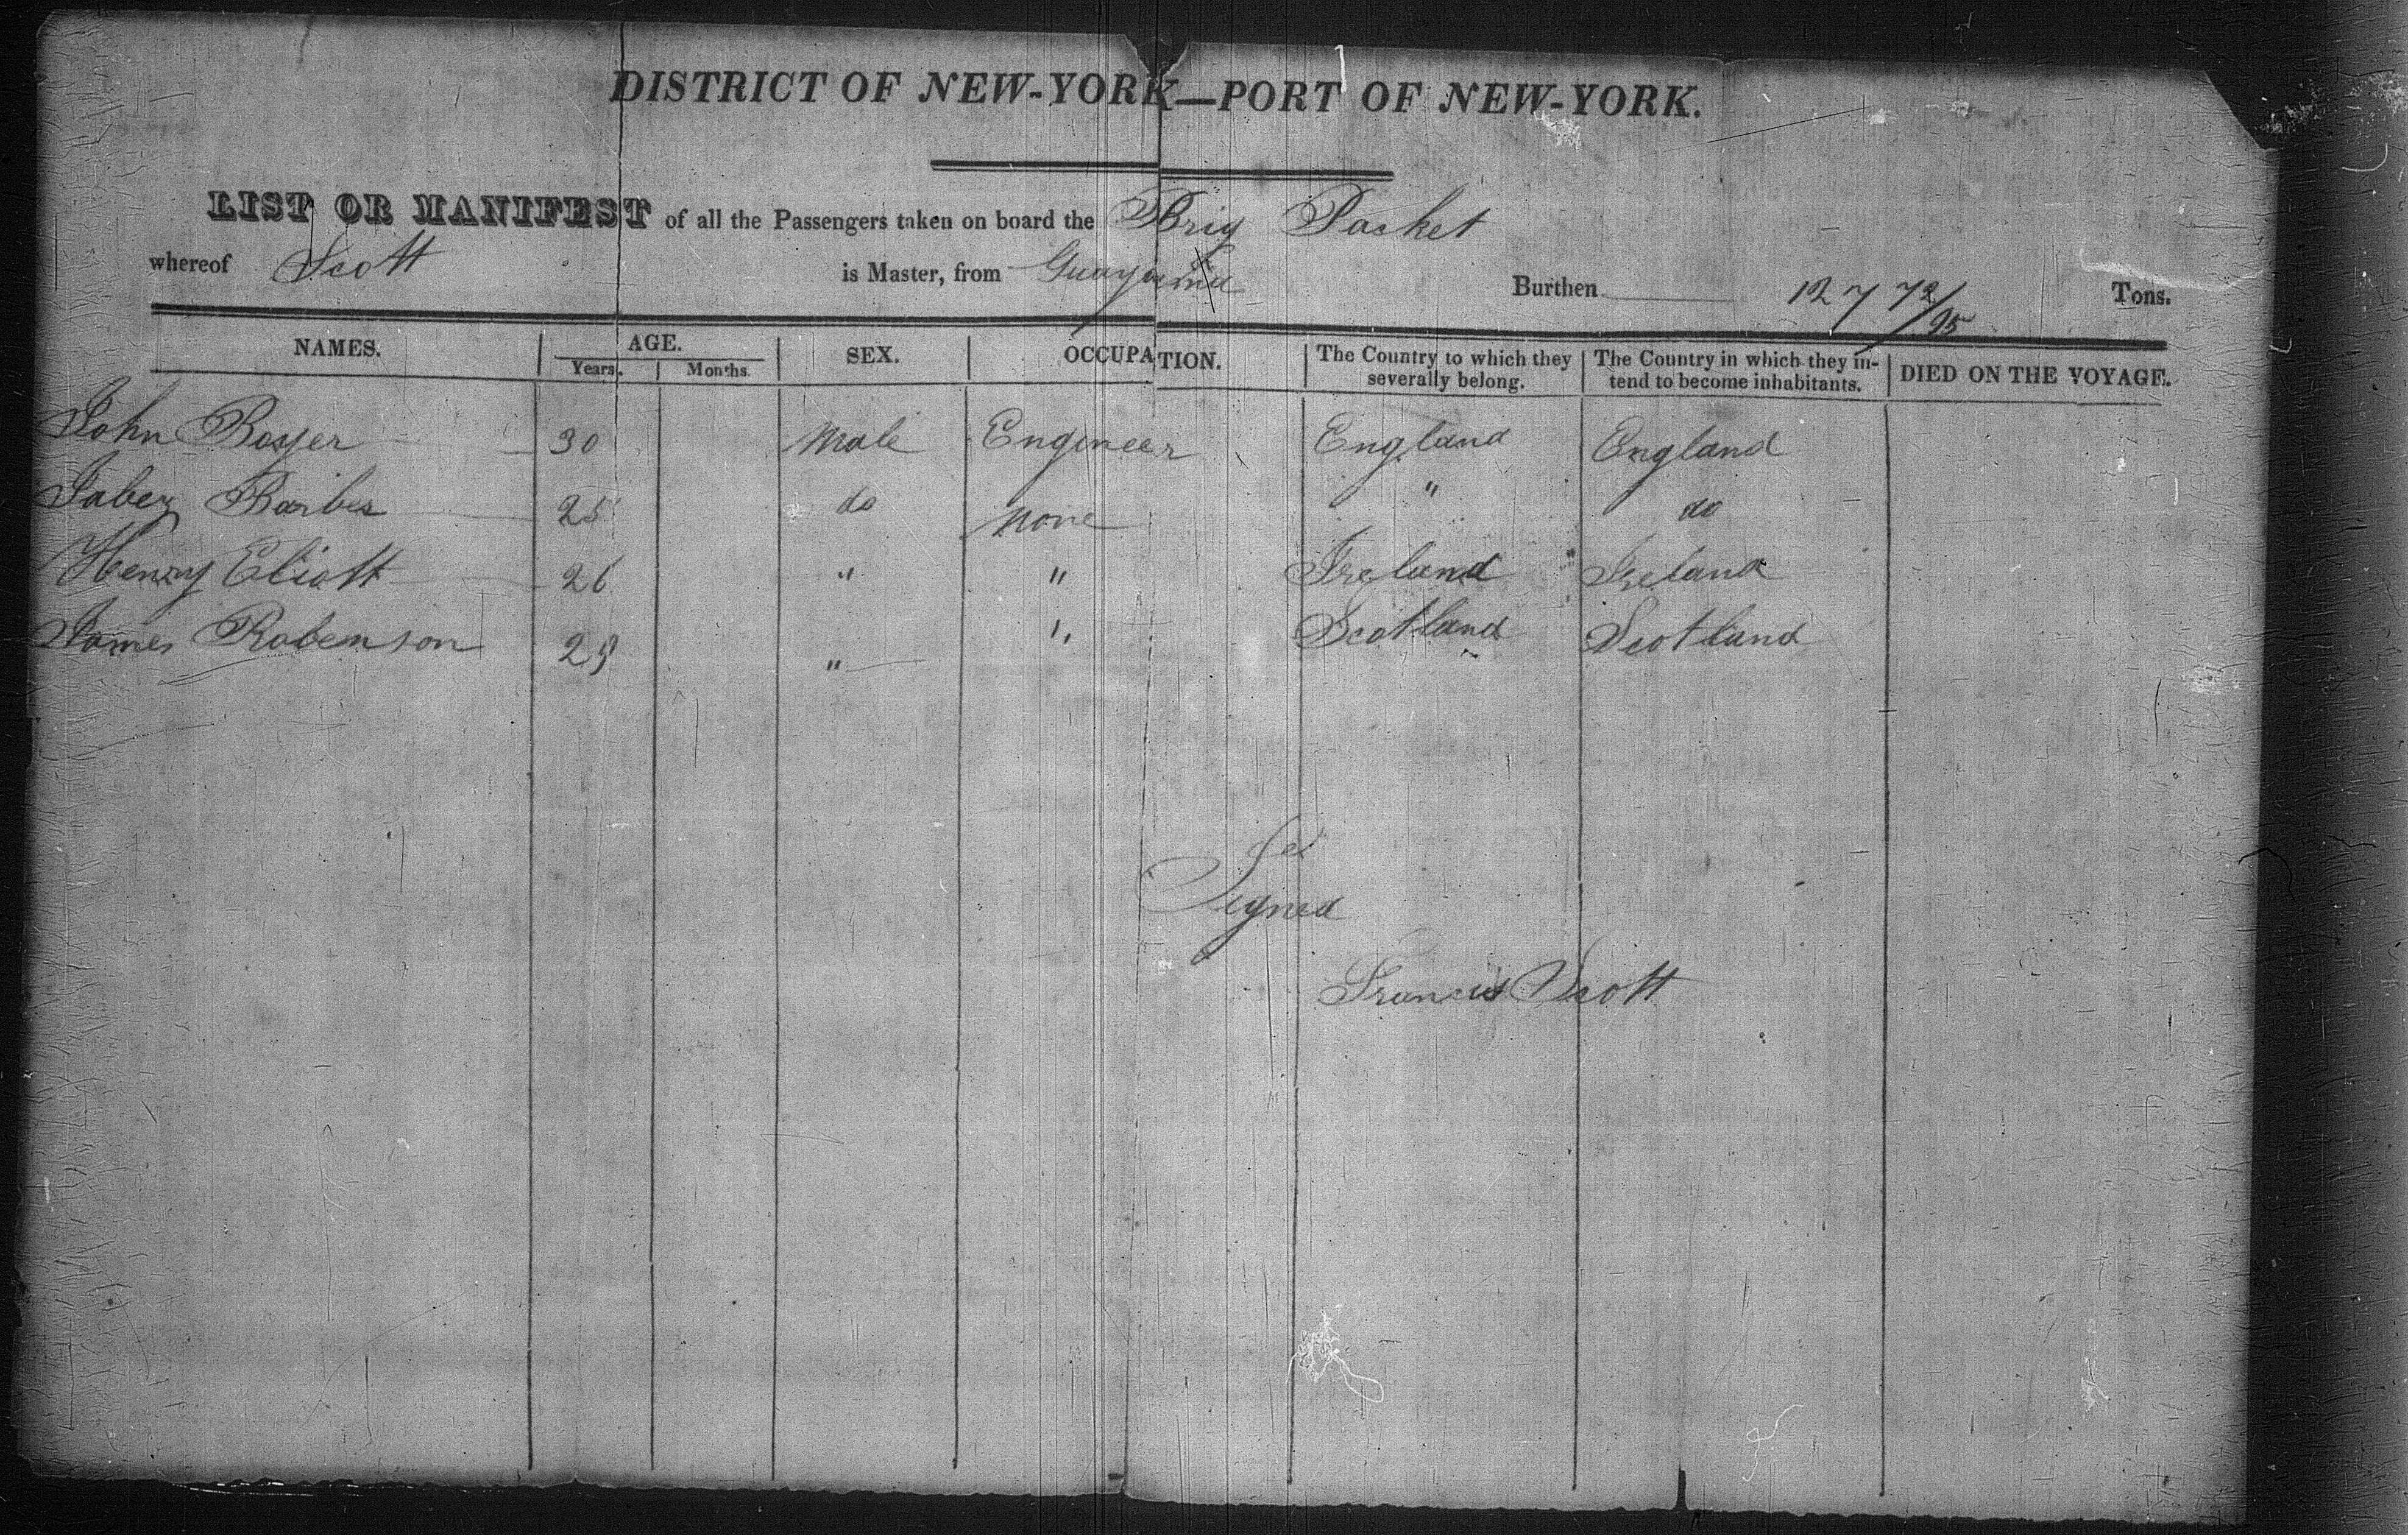 DISTRICT OF NEW-YORK—PORT OF NEW-YORK.
LIST OR MANIFEST of all the Passengers taken on board the Brig Packet
whereof Scott is Master, from Guayama Burthen 127 72/95 Tons.
NAMES. AGE. SEX. OCCUPATION. The Country to which they severally belong. The Country in which they intend to become inhabitants. DIED ON THE VOYAGE.
Years. Months.
John 30 Male Engineer England England
Jabez 25 do none " do
Henry Eliott 26 " " Ireland Ireland
James Robenson " " Scotland Scotland
Signed
Francis Scott